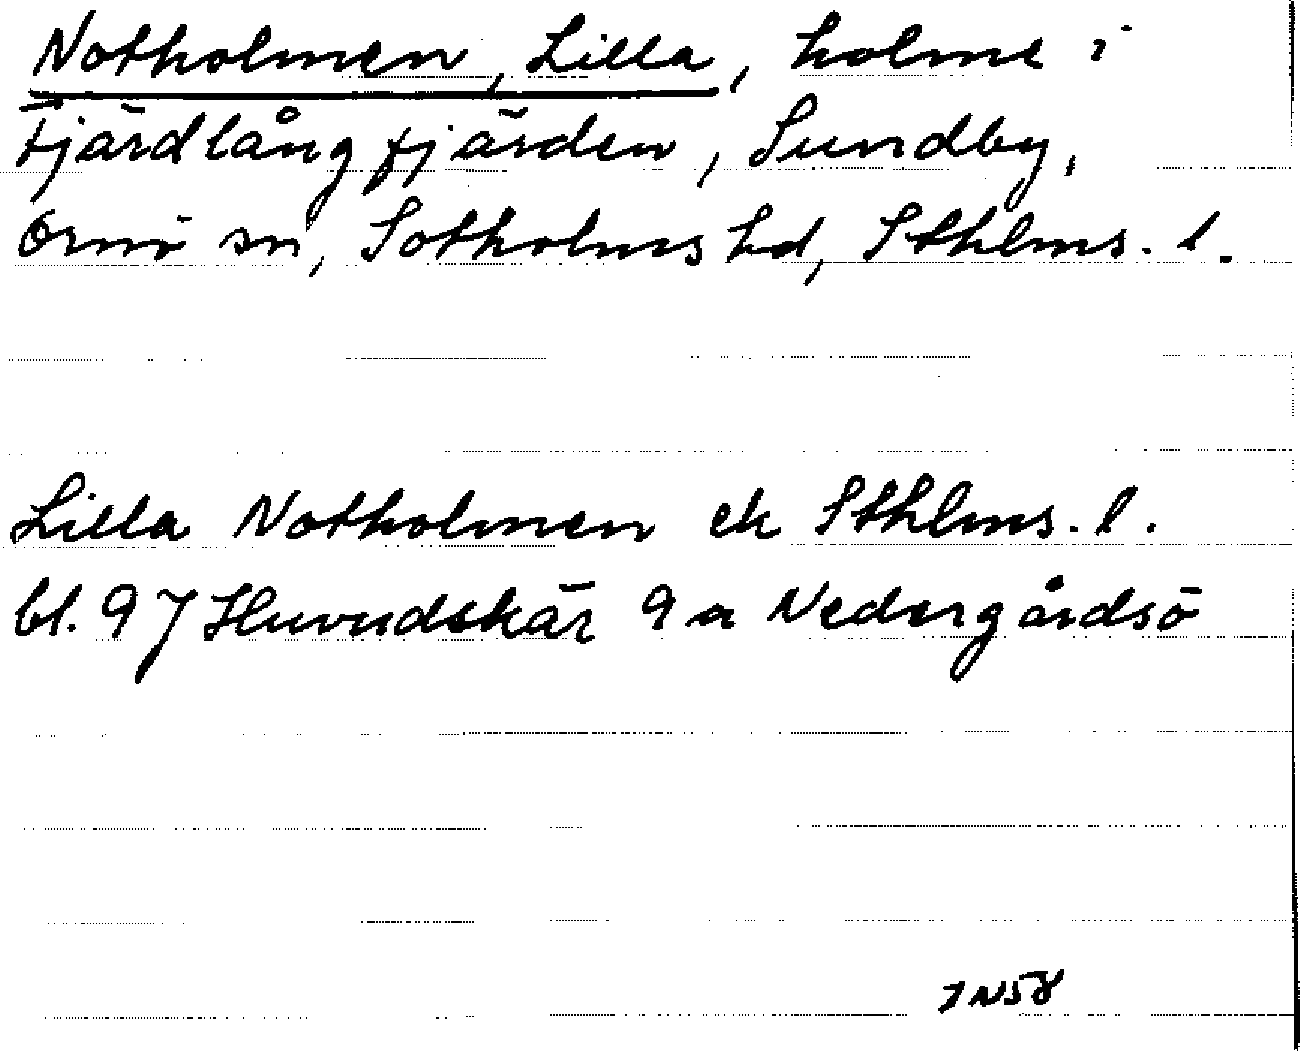 Notholmen, Lilla, holme i
Fjärdlångfjärden, Sundby,
Ornö sn, Sotholms hd, Sthlms. l.
Lilla Notholmen ek Sthlms. l.
bl. 97 Huvudskär 9a Nedergårdsö
IN58